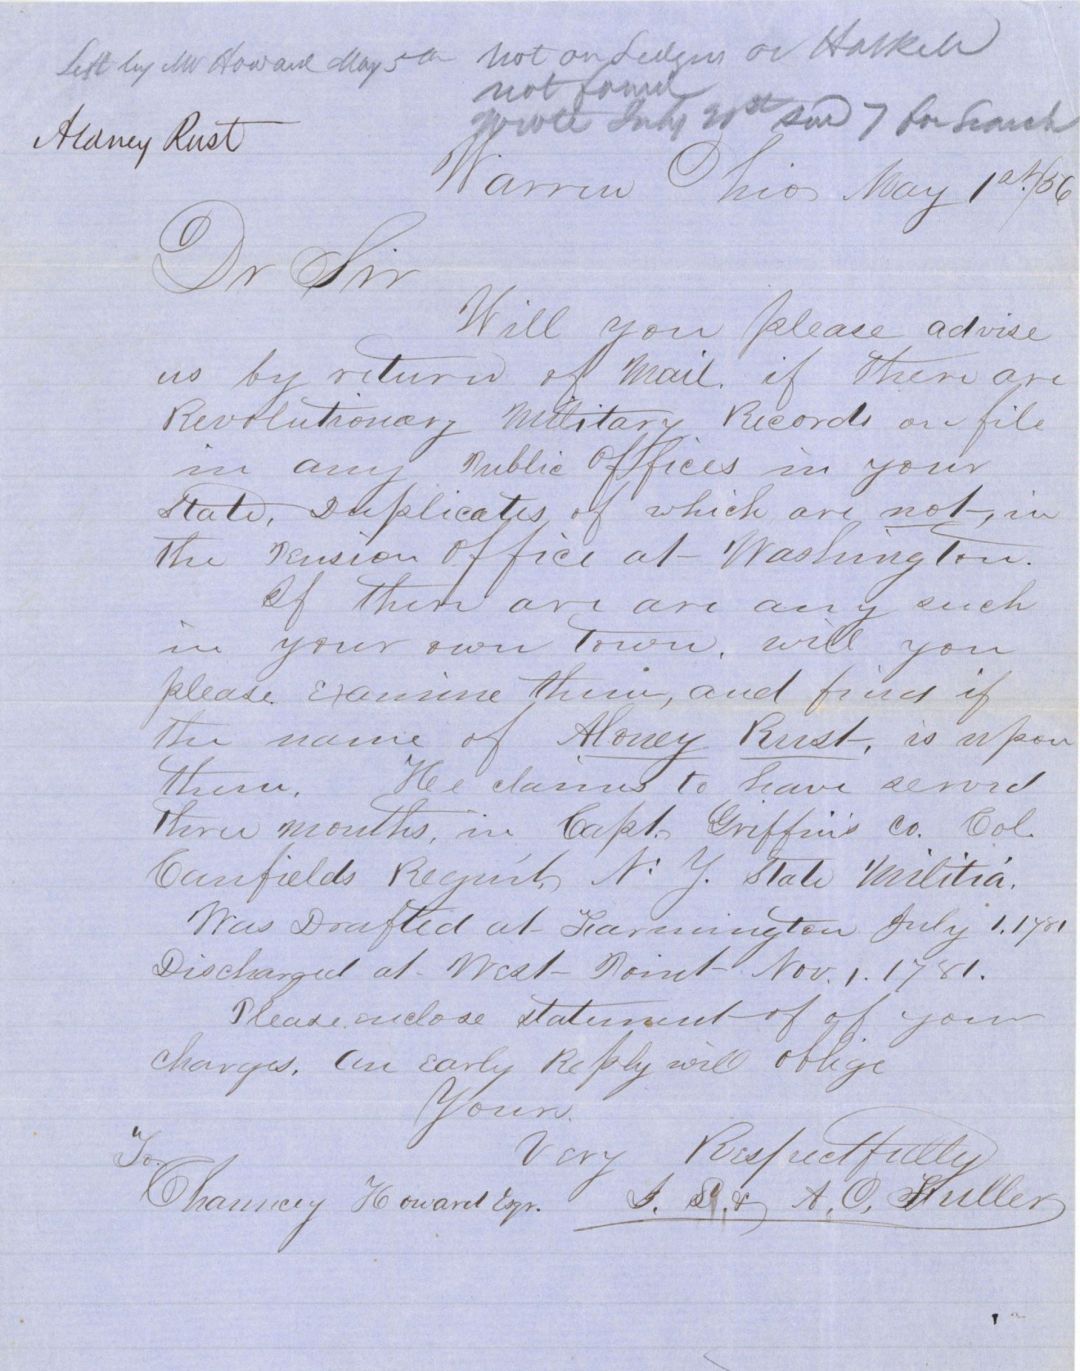 Left by Mr Howard May 5th
Not on Ledgers or Haskell
not found
wrote July 21st 7 for Search
Aldney Rust
Warren Ohio May 1st /56
Dr Sir
Will you please advise
us by return of Mail, if there are
Revolutionary Military Records on file
in any Public Offices in your
State, Duplicates of which are not, in
the Pension Office at Washington.
If there are are any such
in your own Town, will you
please examine them, and find if
the name of Aloney Rust, is upon
them. He claims to have served
three months, in Capt. Griffin's Co. Col.
Canfields Regim't N. Y. State Militia.
Was Drafted at Farmington July 1. 1781
Discharged at West Point Nov. 1. 1781.
Please enclose statement of of your
charges. An early Reply will oblige
Yours
Very Respectfully
To
Chauncey Howard Esqr.
I. L. & A. O. Fuller